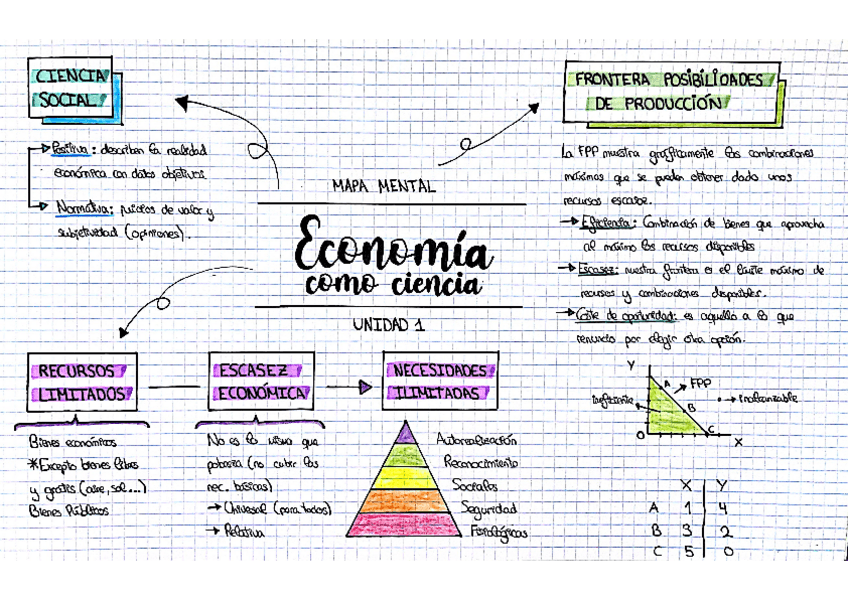 CIENCIA
SOCIAL
Positiva: describen la realidad
económica con datos objetivos.
Normativa: juicios de valor y
subjetividad (opiniones).
MAPA MENTAL
Economía
como ciencia
UNIDAD 1
FRONTERA POSIBILIDADES
DE PRODUCCIÓN
La FPP muestra gráficamente las combinaciones
máximas que se pueden obtener dado unos
recursos escasos.
Eficiencia: Combinación de bienes que aprovecha
al máximo los recursos disponibles
Escasez: nuestra frontera es el límite máximo de
recursos y combinaciones disponibles.
Coste de oportunidad: es aquello a lo que
renuncio por elegir otra opción.
Y
A
FPP
Ineficiente
B
Inalcanzable
C
O
X
X Y
A 1 4
B 3 2
C 5 0
RECURSOS
LIMITADOS
Bienes económicos
*Excepto bienes libres
y gratis (aire, sol...)
Bienes Públicos
ESCASEZ
ECONÓMICA
No es lo mismo que
pobreza (no cubrir las
nec. básicas)
→ Universal (para todos)
→ Relativa
NECESIDADES
ILIMITADAS
Autorrealización
Reconocimiento
Sociales
Seguridad
Fisiológicas